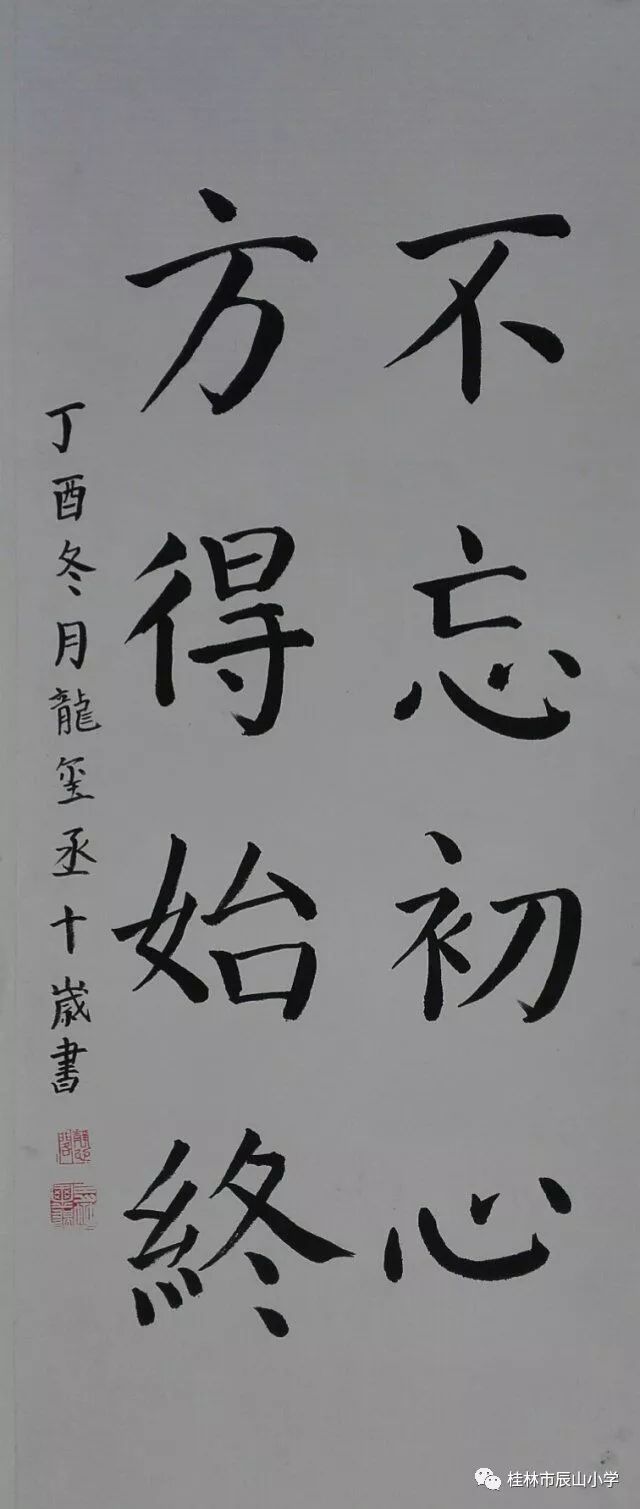 不忘初心
方得始終
丁酉冬月龍玺丞十歲書
桂林市辰山小学